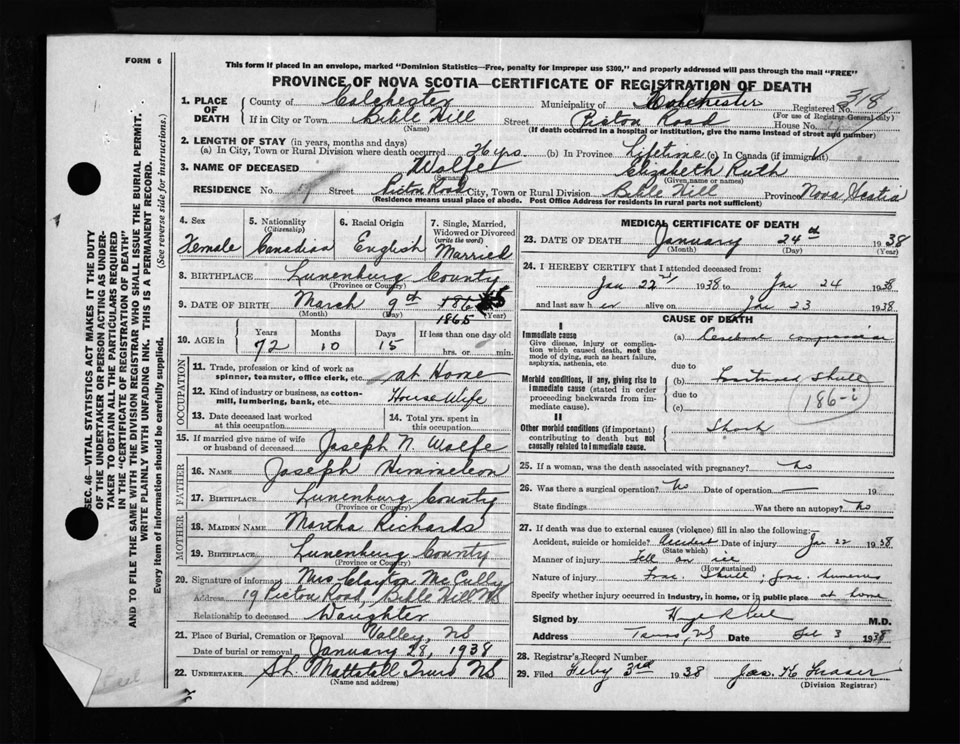 FORM 6
This form if placed in an envelope, marked "Dominion Statistics—Free, penalty for improper use $300," and properly addressed will pass through the mail "FREE"
PROVINCE OF NOVA SCOTIA—CERTIFICATE OF REGISTRATION OF DEATH
1. PLACE OF DEATH
County of Colchester Municipality of Colchester Registered No. 318
(For use of Registrar General only)
If in City or Town Bible Hill Street Picton Road House No.
(Name) (If death occurred in a hospital or institution, give the name instead of street and number)
2. LENGTH OF STAY (in years, months and days)
(a) In City, Town or Rural Division where death occurred 36 yrs. (b) In Province Lifetime (c) In Canada (if immigrant)
3. NAME OF DECEASED Wolfe Elizabeth Ruth
(Surname) (Given name or names)
RESIDENCE No. Street Picton Road City, Town or Rural Division Bible Hill Province Nova Scotia
(Residence means usual place of abode. Post Office Address for residents in rural parts not sufficient)
4. Sex Female
5. Nationality (Citizenship) Canadian
6. Racial Origin English
7. Single, Married, Widowed or Divorced (write the word) Married
8. BIRTHPLACE Lunenburg County
(Province or Country)
9. DATE OF BIRTH March 9th 1865
(Month) (Day) (Year)
10. AGE in Years Months Days If less than one day old
72 10 15 hrs. or min.
OCCUPATION
11. Trade, profession or kind of work as spinner, teamster, office clerk, etc. at Home
12. Kind of industry or business, as cotton-mill, lumbering, bank, etc. House Wife
13. Date deceased last worked at this occupation
14. Total yrs. spent in this occupation
15. If married give name of wife or husband of deceased Joseph N. Wolfe
FATHER
16. NAME Joseph
17. BIRTHPLACE Lunenburg County
(Province or Country)
MOTHER
18. MAIDEN NAME Martha Richards
19. BIRTHPLACE Lunenburg County
(Province or Country)
20. Signature of informant Mrs Clayton McCully
Address 19 Picton Road, Bible Hill NS
Relationship to deceased Daughter
21. Place of Burial, Cremation or Removal Valley, NS
Date of burial or removal January 28, 1938
22. UNDERTAKER Mattatall Truro NS
(Name and address)
MEDICAL CERTIFICATE OF DEATH
23. DATE OF DEATH January 24th 1938
(Month) (Day) (Year)
24. I HEREBY CERTIFY that I attended deceased from:
Jan 22nd 1938 to Jan 24 1938
and last saw her alive on Jan 23 1938
CAUSE OF DEATH
I
Immediate cause
Give disease, injury or complication which caused death, not the mode of dying, such as heart failure, asphyxia, asthenia, etc.
(a) Cerebral compression
due to
Morbid conditions, if any, giving rise to immediate cause (stated in order proceeding backwards from immediate cause).
(b) Fractured Skull
due to
(c)
186-c
II
Other morbid conditions (if important) contributing to death but not causally related to immediate cause.
Shock
25. If a woman, was the death associated with pregnancy? No
26. Was there a surgical operation? No Date of operation — 19
State findings Was there an autopsy? No
27. If death was due to external causes (violence) fill in also the following:—
Accident, suicide or homicide? Accident Date of injury Jan 22 1938
(State which)
Manner of injury Fell on ice
(How sustained)
Nature of injury Frac. Skull; frac. humerus
Specify whether injury occurred in industry, in home, or in public place at home
Signed by M.D.
Address Truro, NS Date Feb 3 1938
28. Registrar's Record Number
29. Filed Feby 3rd 1938 Jas. H. Fraser
(Division Registrar)
SEC. 46—VITAL STATISTICS ACT MAKES IT THE DUTY
OF THE UNDERTAKER OR PERSON ACTING AS UNDER-
TAKER TO OBTAIN ALL THE PARTICULARS REQUIRED
IN THE "CERTIFICATE OF REGISTRATION OF DEATH"
AND TO FILE THE SAME WITH THE DIVISION REGISTRAR WHO SHALL ISSUE THE BURIAL PERMIT.
WRITE PLAINLY WITH UNFADING INK. THIS IS A PERMANENT RECORD.
Every item of information should be carefully supplied. (See reverse side for instructions.)